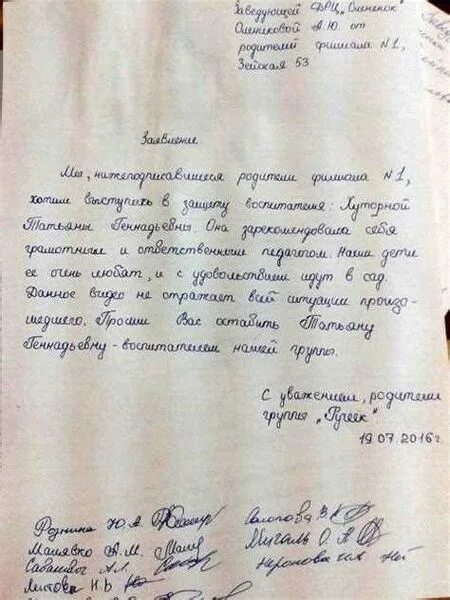 Заведующей ФРЦ „Олененок"
Олениковой А.Ю. от
родителей филиала N1,
Зейская 53
Заявление.
Мы, нижеподписавшиеся родители филиала N1,
хотим выступить в защиту воспитателя: Хуторной
Татьяны Геннадьевны. Она зарекомендовала себя
грамотным и ответственным педагогом. Наши дети
ее очень любят, и с удовольствием идут в сад.
Данное видео не отражает всей ситуации произо-
шедшего. Просим Вас оставить Татьяну
Геннадьевну - воспитателем нашей группы.
С уважением, родители
группы „Ручеек"
19.07.2016г.
Роднина Ю.А.
Малявко А.М.
А.Л.
Н.В.
В.К.
Мигаль О.А.